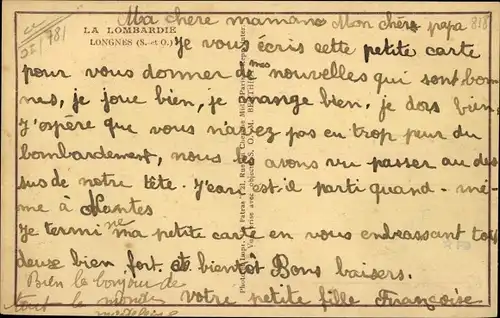 Ma chere maman Mon chère papa 818
LA LOMBARDIE
LONGNES (S.-et-O.)
Je vous écris cette petite carte
pour vous donner de mes nouvelles qui sont bon
nes, je joue bien, je mange bien, je dors bien
J'espère que vous n'avez pas eu trop peur du
bombardement, nous les avons vu passer au des
sus de notre tête. J'ean est-il parti quand-mê
me à Nantes
Je termine ma petite carte en vous embrassant tous
deux bien fort. et bientot Bons baisers.
Bien le bonjour de
tout le monde
votre petite fille Françoise